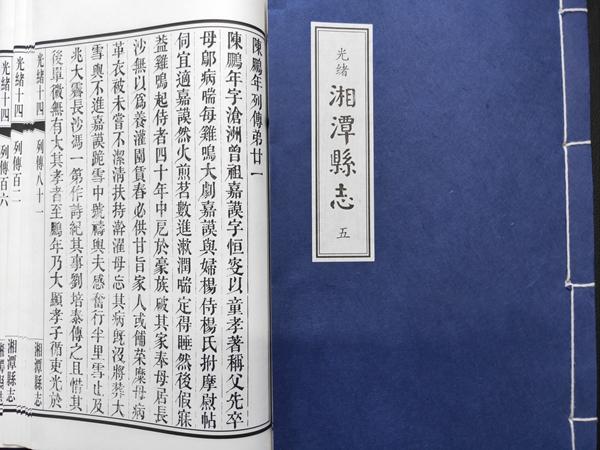 光緒
湘潭縣志
五
陳鵬年列傳弟廿一
陳鵬年字滄洲曾祖嘉謨字恒安以童孝著稱父先卒
母鄔病喘每雞鳴大劇嘉謨與婦楊侍楊氏拊摩尉帖
伺宜適嘉謨然火煎茗數進漱潤喘定得睡然後假寐
益雞鳴起侍者四十年中戹於豪族破其家奉母居長
沙無以爲養灌園賃舂必供甘旨家人或備菜糜母病
革衣被未嘗不潔淸扶持澣濯母忘其病旣沒將葬大
雪輿不進嘉謨跪雪中號禱輿夫感奮行半里雪止及
兆大霽長沙馮一第作詩紀其事劉培泰傳之且惜其
後單微無有大其孝者至鵬年乃大顯孝子衕吏光於
光緒十四
列傳八十一
湘潭縣志
光緒十四
列傳百二
湘潭縣志
光緒十四
列傳百六
湘潭縣志